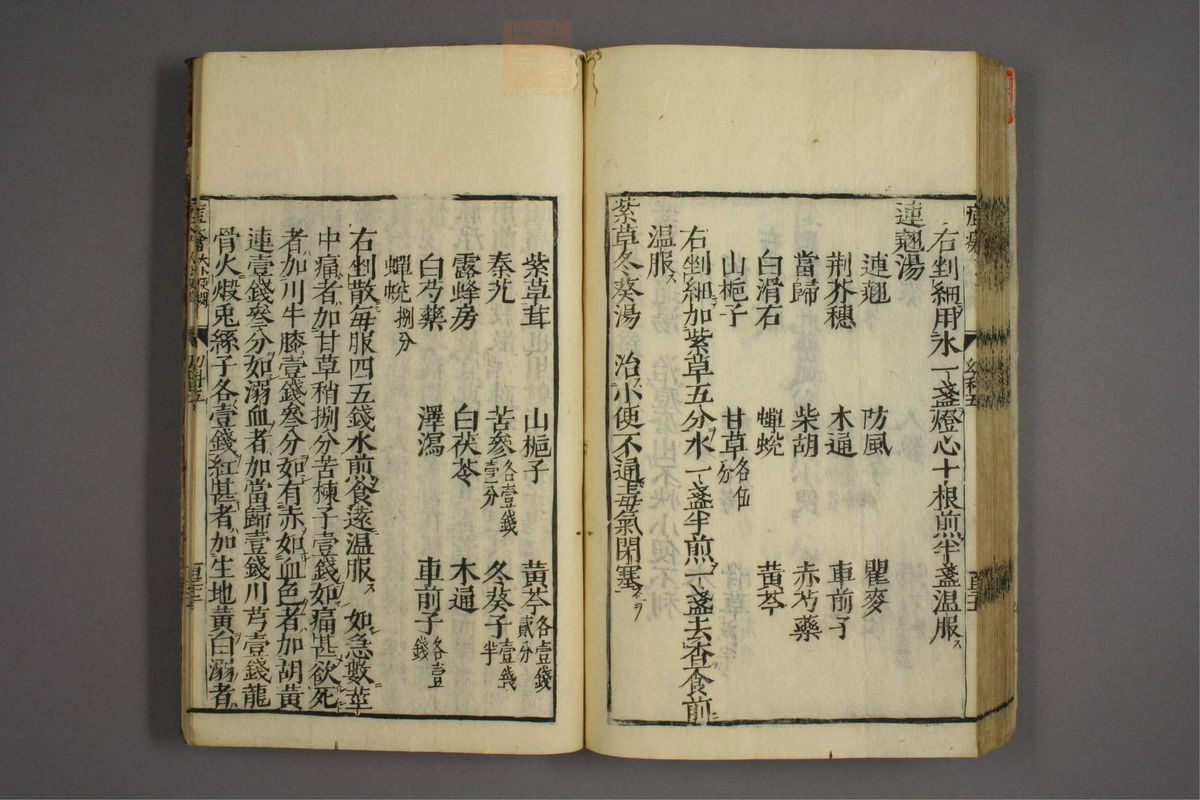 右剉細用水一盞燈心十根煎半盞温服ス
連翹湯
連翹　防風　瞿麥
荆芥穗　木通　車前子
當歸　柴胡　赤芍藥
白滑石　蟬蛻　黄芩
山梔子　甘草各伍分
右剉細加紫草五分水一盞半煎一盞去查食前
温服ス
紫草冬葵湯　治小便不通毒氣閉塞
紫草茸　山梔子　黄芩各壹錢貳分
秦艽　苦參各壹錢壹分　冬葵子壹錢半
露蜂房　白茯苓　木通
白芍藥　澤瀉　車前子各壹錢
蟬蛻捌分
右剉散每服四五錢水煎食遠温服ス　如急數莖
中痛者加甘草稍捌分苦楝子壹錢如痛甚欲死
者加川牛膝壹錢叁分如有赤如血色者加胡黄
連壹錢叁分如溺血者加當歸壹錢川芎壹錢龍
骨火煅兎絲子各壹錢紅甚者加生地黄白溺者